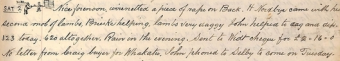 SAT 2 Nice forenoon, winnelled a piece of rape on Back. H. Hosbys came with his
second mob of lambs. Brients helping, lambs very daggy. John helped to dag and dip.
123 today. 620 altogether. Rain in the evening. Sent to Vest cheque for £2-16-0
No letter from Craig buyer for Whakatu, John phoned to Selby to come on Tuesday